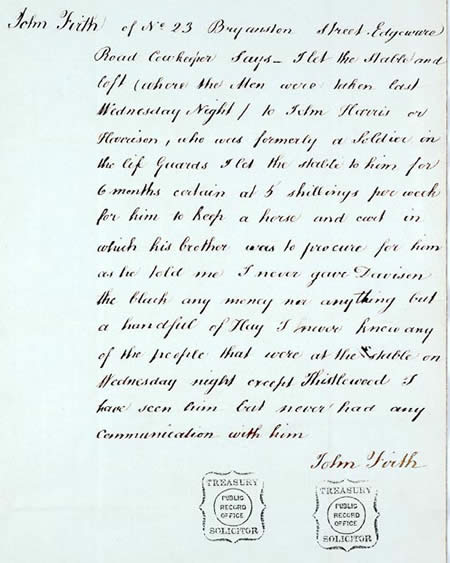 John Firth of No 23 Bryanston Street Edgeware
Road Cowkeeper Says – I let the Stable and
loft (where the Men were taken last
Wednesday Night) to John Harris or
Harrison, who was formerly a Soldier in
the life Guards I let the stable to him for
6 months certain at 5 shillings per week
for him to keep a horse and cart in
which his brother was to procure for him
as he told me I never gave Davison
the black any money nor anything but
a handful of Hay I never knew any
of the people that were at the Stable on
Wednesday night except Thistlewood I
have seen him but never had any
communication with him
John Firth
TREASURY
PUBLIC
RECORD
OFFICE
SOLICITOR
TREASURY
PUBLIC
RECORD
OFFICE
SOLICITOR